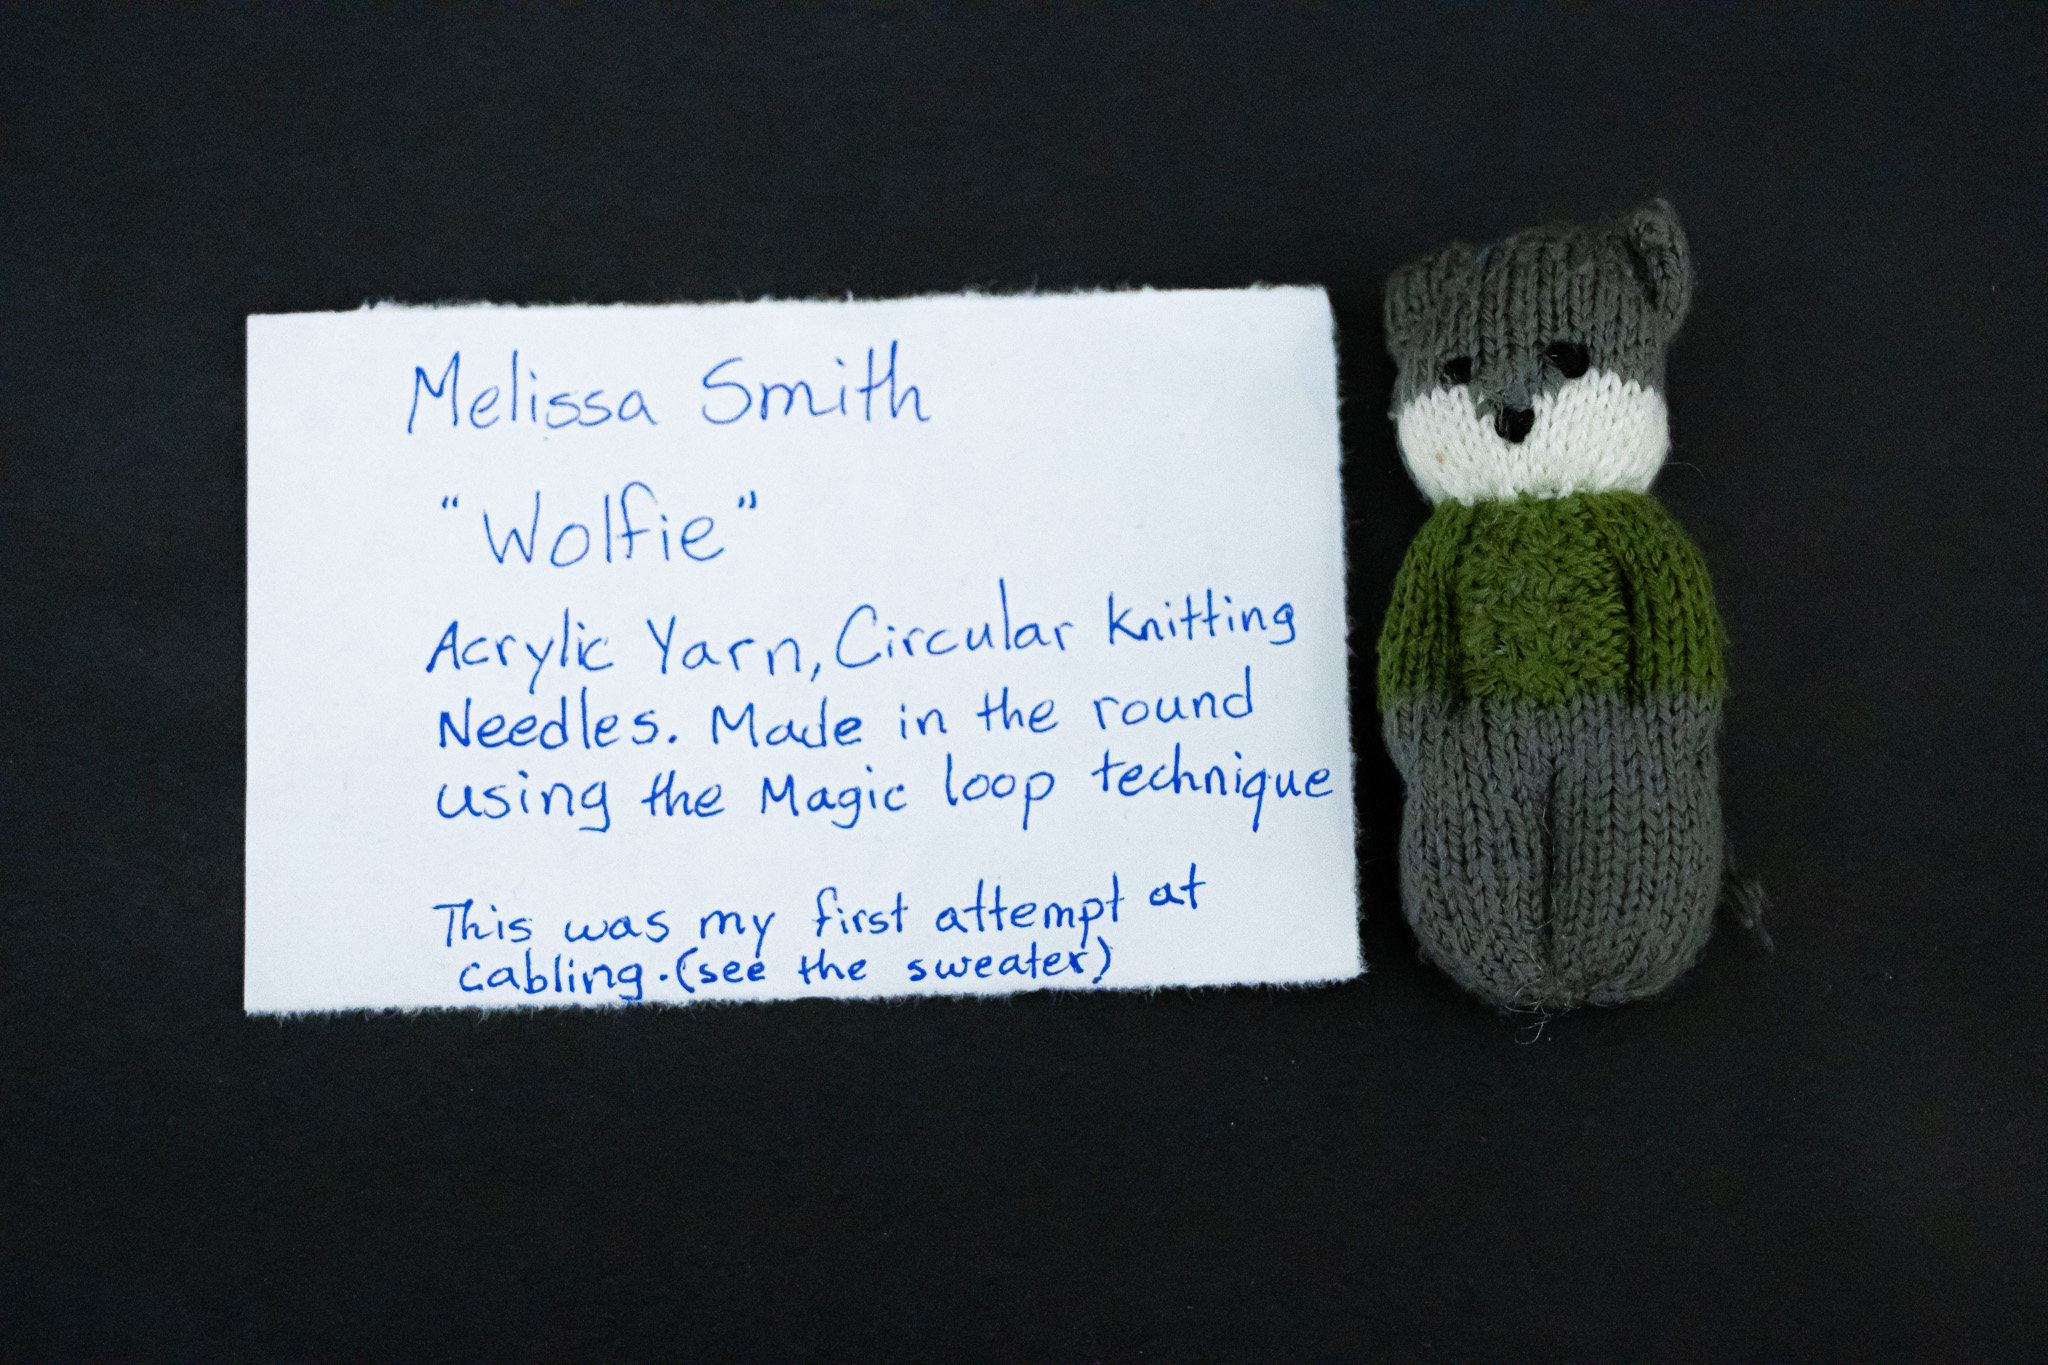 Melissa Smith
"Wolfie"
Acrylic Yarn, Circular Knitting
Needles. Made in the round
using the Magic loop technique
This was my first attempt at
cabling. (see the sweater)